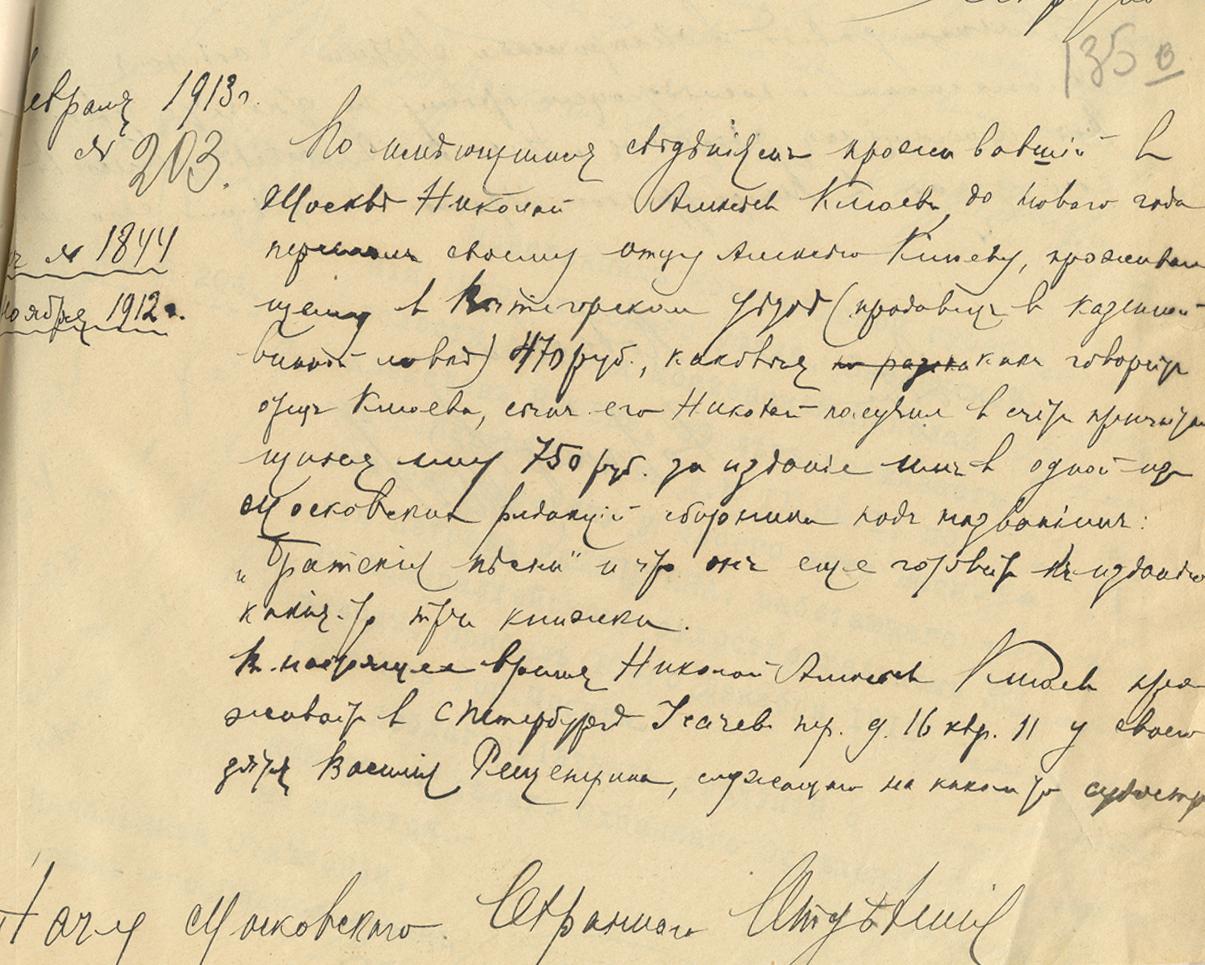 135 в
февраля 1913 г.
№ 203.
№ 1844
ноября 1912 г.
По имѣющимся свѣдѣніямъ проживавшій в
Москвѣ Николай Алексѣев Клюевъ, до Нового года
переслалъ своему отцу Алексѣю Клюеву, проживаю
щему в Вытегорском уѣздѣ (продавец в казенной
винной лавкѣ) 470 руб., каковыя как говоритъ
отец Клюева, сынъ его Николай получил в счетъ причитаю
щихся ему 750 руб. за изданіе имъ в одной из
Московских редакцій сборника подъ названіемъ:
„Братскія пѣсни" и что онъ еще готовитъ къ изданію
какія-то три книжки.
В настоящее время Николай Алексѣев Клюев про
живаетъ в С Петербургѣ Усачев пер. д. 16 кв. 11 у своего
дяди Василія Расщеперина, служащаго на каком то судостр
Нач Московского Охранного Отдѣленія